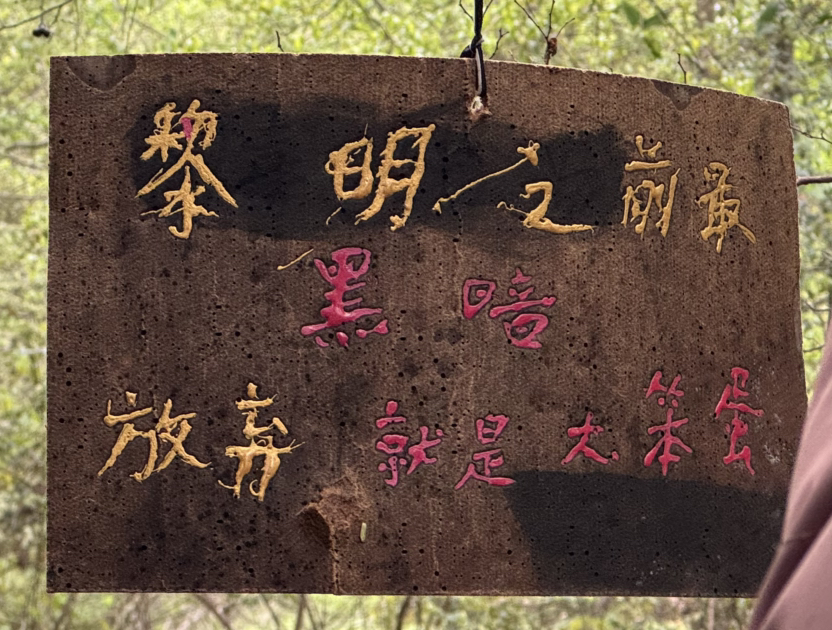 黎明之前最
黑暗
放棄就是大笨蛋